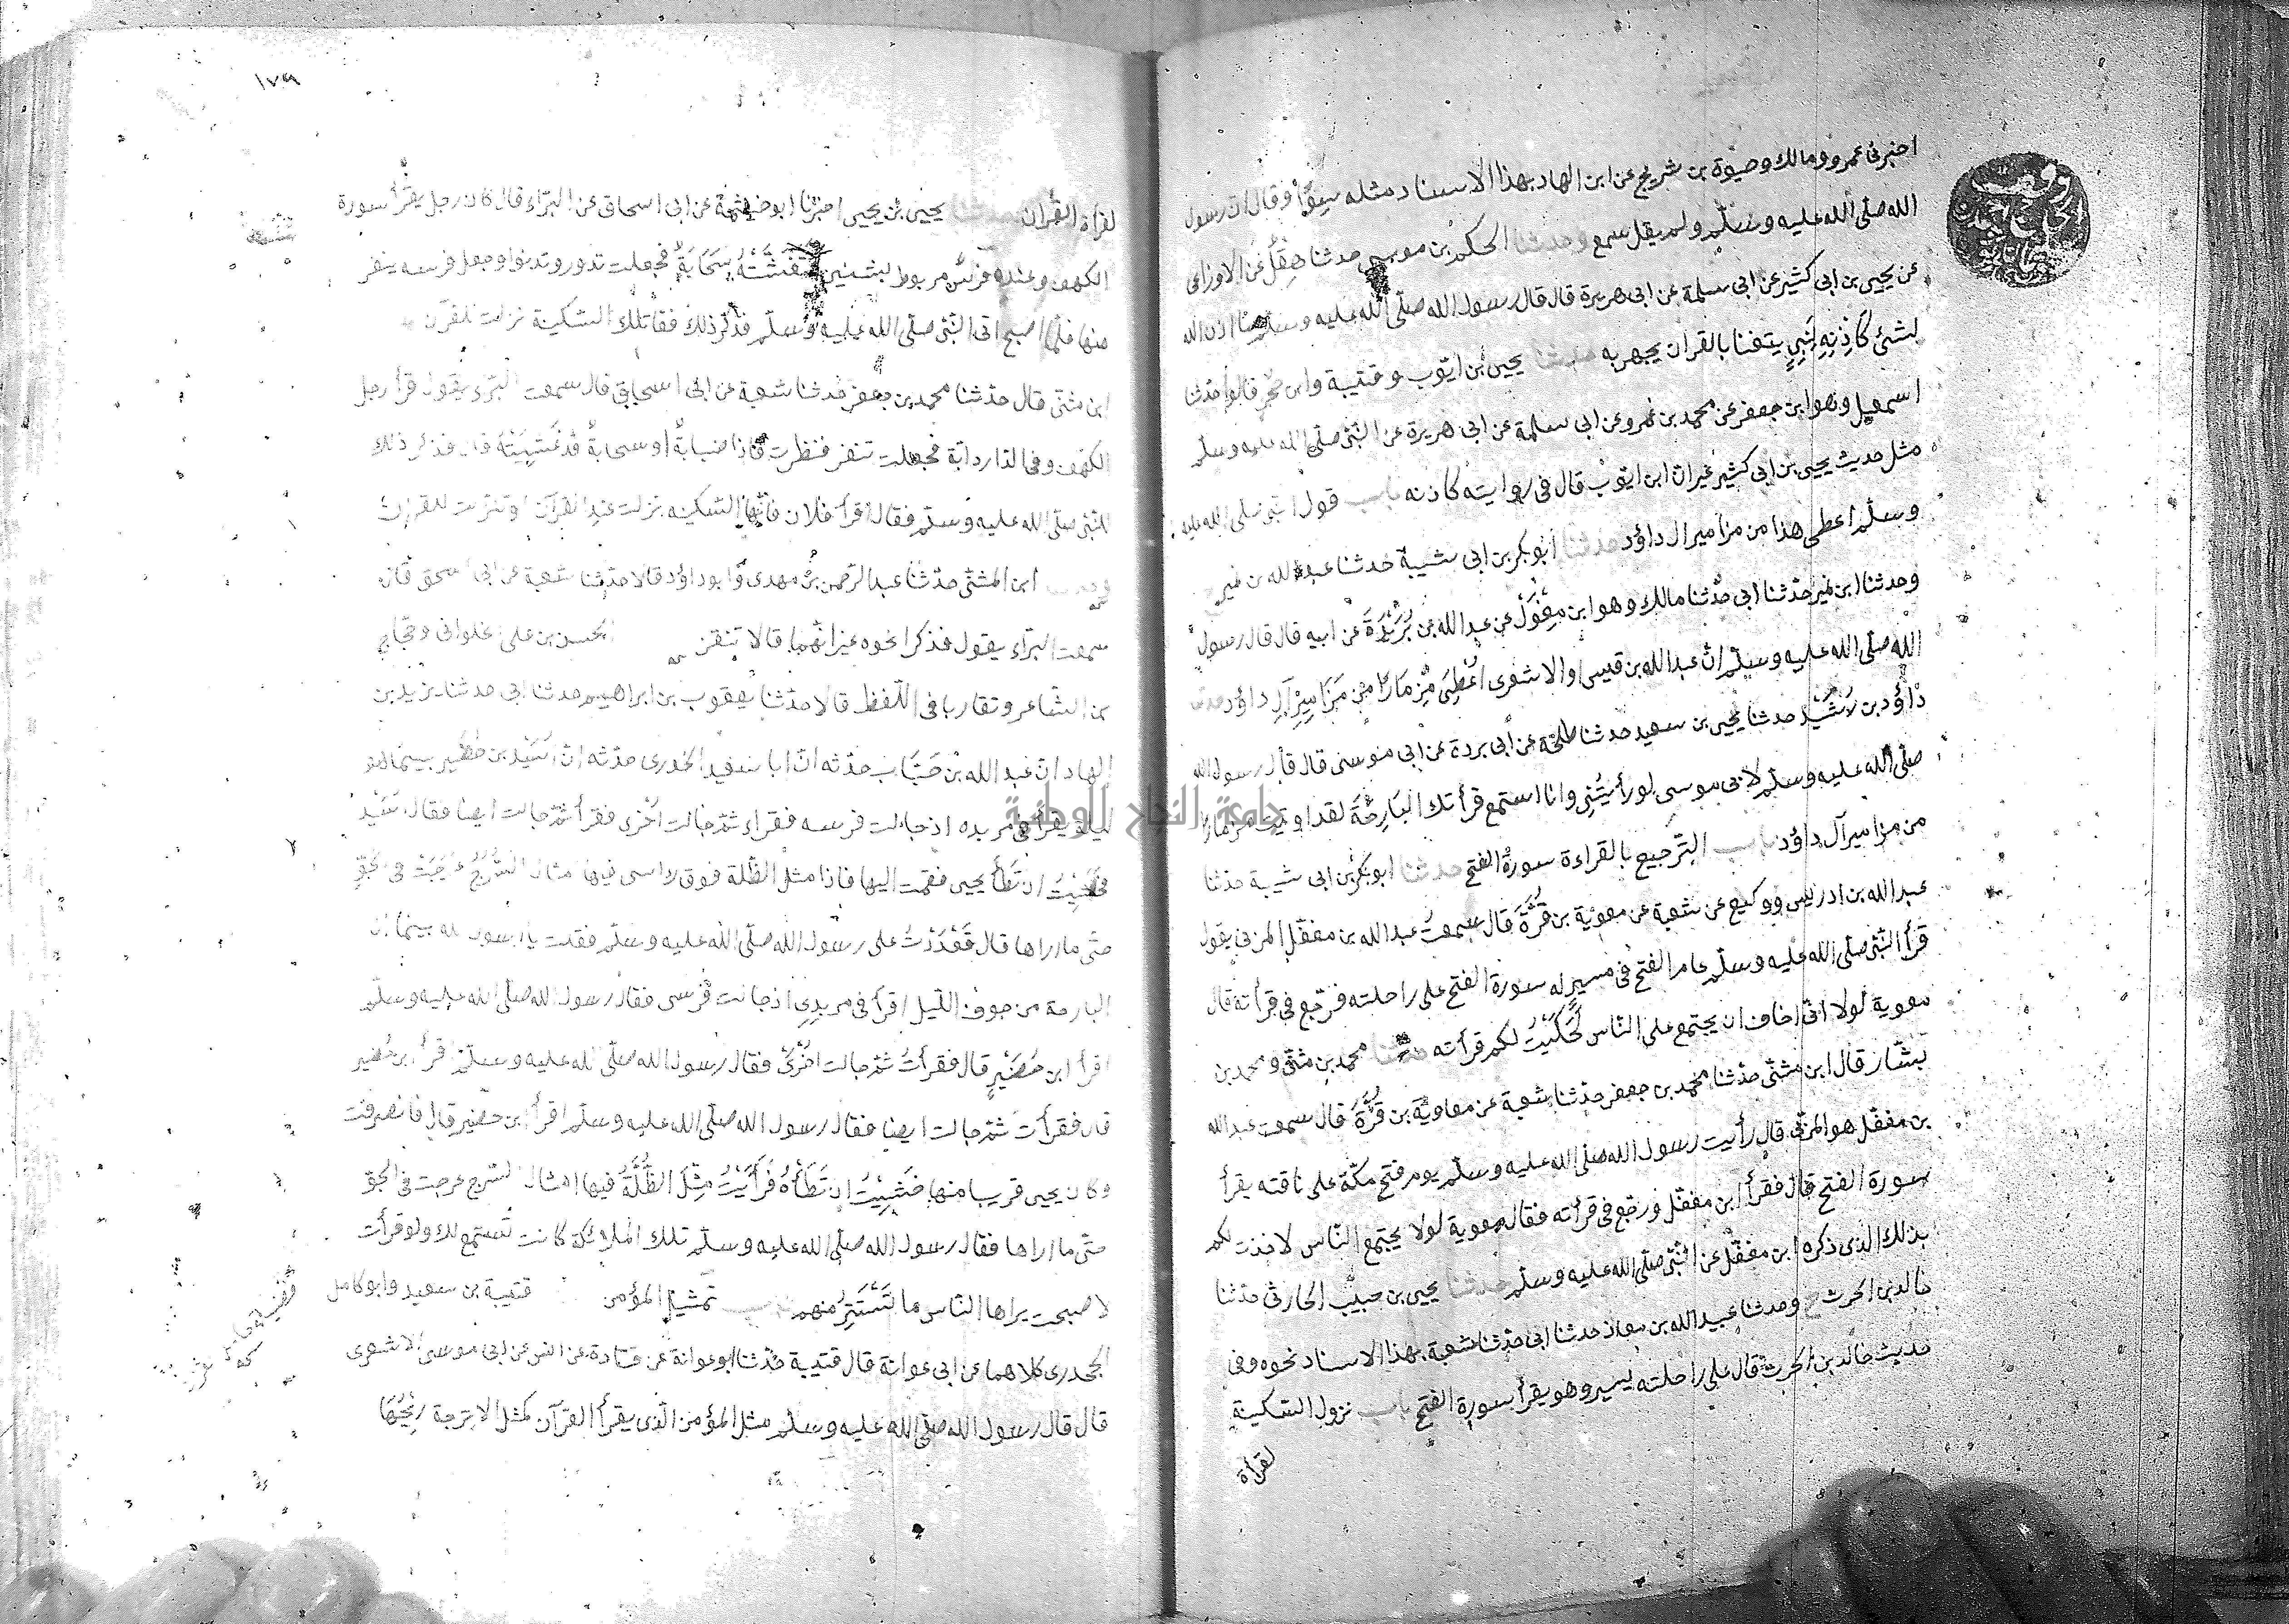 اخبرنى عمرو ومالك وحيوة بن شريح عن ابن الهاد بهذا الاسناد مثله سواء وقال ان رسول
الله صلّى الله عليه وسلّم ولم يقل سمع وحدثنا الحكم بن موسى حدثنا هِقْل عن الاوزاعى
عن يحيى بن ابى كثير عن ابى سلمة عن ابى هريرة قال قال رسول الله صلّى الله عليه وسلّم ما اذن الله
لشئ كأَذَنِهِ لنبىٍ يتغنا بالقران يجهر به حدثنا يحيى بن ايّوب وقتيبة وابن حجر قالوا حدّثنا
اسمعيل وهوا بن جعفر عن محمد بن عمرو عن ابى سلمة عن ابى هريرة عن النّبىّ صلّى الله عليه وسلّم
مثل حديث يحيى بن ابى كثير غير انّ ابن ايّوب قال فى روايته كاذنه باب قول النبى صلى الله عليه
وسلّم اعطى هذا من مزامير ال داؤد حدثنا ابوبكر بن ابى شيبة حدثنا عبد الله بن نمير ح
وحدثنا ابن نمير حدّثنا ابى حدّثنا مالك وهو ابن مِغْوَلْ عن عبد الله بن بُرَيْدَةَ عن ابيه قال قال رسول
الله صلّى الله عليه وسلّم انّ عبد الله بن قيس او الاشعرى اُعْطِىَ مِزْمَارًا مِن مَزَامِيْرِ آلِ داؤد حدثنا
داؤد بن رُشَيْد حدثنا يحيى بن سعيد حدثنا طلحة عن ابى بردة عن ابى موسى قال قال رسول الله
صلّى الله عليه وسلّم لابى موسى لو رأيتُنِى وانا استمع قرأتك البَارِحَةَ لقد اوتيت مزمارا
من مزامير آل داؤد باب التّرجيع بالقراءة سورة الفتح حدثنا ابوبكر بن ابى شيبة حدّثنا
عبد الله بن ادريس ووكيع عن شعبة عن معوية بن قُرَّةَ قال سمعتُ عبد الله بن مغفّل المزنى يقول
قرأ النّبىّ صلّى الله عليه وسلّم عام الفتح فى مسير له سورة الفتح على راحلته فرجّع فى قرأته قال
معوية لولا انّى اخاف ان يجتمع على النّاس لَحَكَيْتُ لكم قرأته حدثنا محمد بن مثنّى ومحمد بن
بشّار قال ابن مثنّى حدّثنا محمد بن جعفر حدّثنا شعبة عن معاوية بن قُرَّةَ قال سمعت عبد الله
بن مغفّل هو المزنّى قال رأيت رسول الله صلّى الله عليه وسلّم يوم فتح مكّة على ناقته يقرأ
سورة الفتح قال فقرأ ابن مغفّل ورجّع فى قرأته فقال معوية لولا يجتمع النّاس لاخذت لكم
بذلك الذى ذكره ابن مغفّل عن النّبىّ صلّى الله عليه وسلّم حدثنا يحيى بن حبيب الحارثى حدّثنا
خالد بن الحرث ح وحدثنا عبيد الله بن معاذ حدثنا ابى حدّثنا شعبة بهذا الاسناد نحوه وفى
حديث خالد بن الحرث قال على راحلته يسير وهو يقرأ سورة الفتح باب نزول السّكينة
لقرأة
١٧٩
لقرأة القرأن حدثنا يحيى بن يحيى اخبرنا ابو خيثمة عن ابى اسحاق عن البرّاء قال كان رجل يقرأ سورة
الكهف وعنده فرسٌ مربوط بشنين فَتَغَشَّتْهُ سَحَابَةٌ فجعلت تدور وتدنوا وجعل فرسه ينفر
منها فلمّا اصبح اتى النّبّى صلّى الله عليه وسلّم فذكر ذلك فقال تلك السّكينة نزلت للقرآن
ابن مثنّى قال حدّثنا محمد بن جعفر حدثنا شعبة عن ابى اسحاق قال سمعت البرّاء يقول قرأ رجل
الكهف وفى الدّار دابّة فجعلت تنفر فنظرت فاذا ضبابةٌ او سحابةٌ قد غشيَتْهُ قال فذكر ذلك
للنّبىّ صلّى الله عليه وسلّم فقال اقرأ فلان فانّها السّكينه نزلت عند القرآن او تنزّلت للقرآن
ابن المثنّى حدّثنا عبد الرّحمن بنُ مهدى وابو داؤد قالا حدّثنا شعبة عن ابى اسحق قال
سمعت البرّاء يقول فذكرا نحوه غير انّهما قالا تنقز الحسن بن على الحلوانى وحجّاج
بن الشّاعر وتقاربا فى اللّفظ قالا حدّثنا يعقوب بن ابراهيم حدثنا ابى حدثنا يزيد بن
الهاد انّ عبد الله بن خَبّاب حدّثه انّ ابا سعيد الخدرى حدّثه انّ اُسَيْد بن حُضَير بينما هو
ليلة يقرأ فى مربده اذ جالت فرسه فقراء ثمّ جالت اخرى فقرأ ثمّ جالت ايضا فقال اُسَيْد
فخشِيْتُ ان تَطَأَ يحيى فقمت اليها فاذا مثل الظّلة فوق راسى فيها مثال السُّرُجِ عَرَجَتْ فى الجَوِّ
حتّى ما اراها قال فَغَدَوْتُ على رسول الله صلّى الله عليه وسلّم فقلت يا رسول الله بينما انا
البارحة من جوف اللّيل اقرأ فى مربدِى اذ جالت فرسى فقال رسول الله صلّى الله عليه وسلّم
اقرأ ابن حُضَيْرٍ قال فقرأتُ ثمّ جالت اُخْرَىٰ فقال رسول الله صلّى الله عليه وسلّم اقرأ ابن حُضير
قال فقرأت ثمّ جالت ايضا فقال رسول الله صلّى الله عليه وسلّم اقرأ ابن حضير قال فانصرفت
وكان يحيى قريبا منها خَشِيْتُ ان تَطَأَهُ فَرَأَيْتُ مِثْلَ الظُّلَّةُ فيها امثال السّرج عرجت فى الجوّ
حتّى ما اراها فقال رسول الله صلّى الله عليه وسلّم تلك الملائكة كانت تستمع لك ولو قرأت
لاصبحت يراها النّاس ما تَسْتَتِرُ منهم باب تمثيل المؤمن قتيبة بن سعيد وابو كامل
الجحدرى كلاهما عن ابى عوانة قال قتيبة حدّثنا ابو عوانة عن قتادة عن انس عن ابى موسى الاشعرى
قال قال رسول الله صلّى الله عليه وسلّم مثل المؤمن الّذى يقرأ القرآن كمثل الاترجة رِيْحُهَا
جامعة النجاح الوطنية